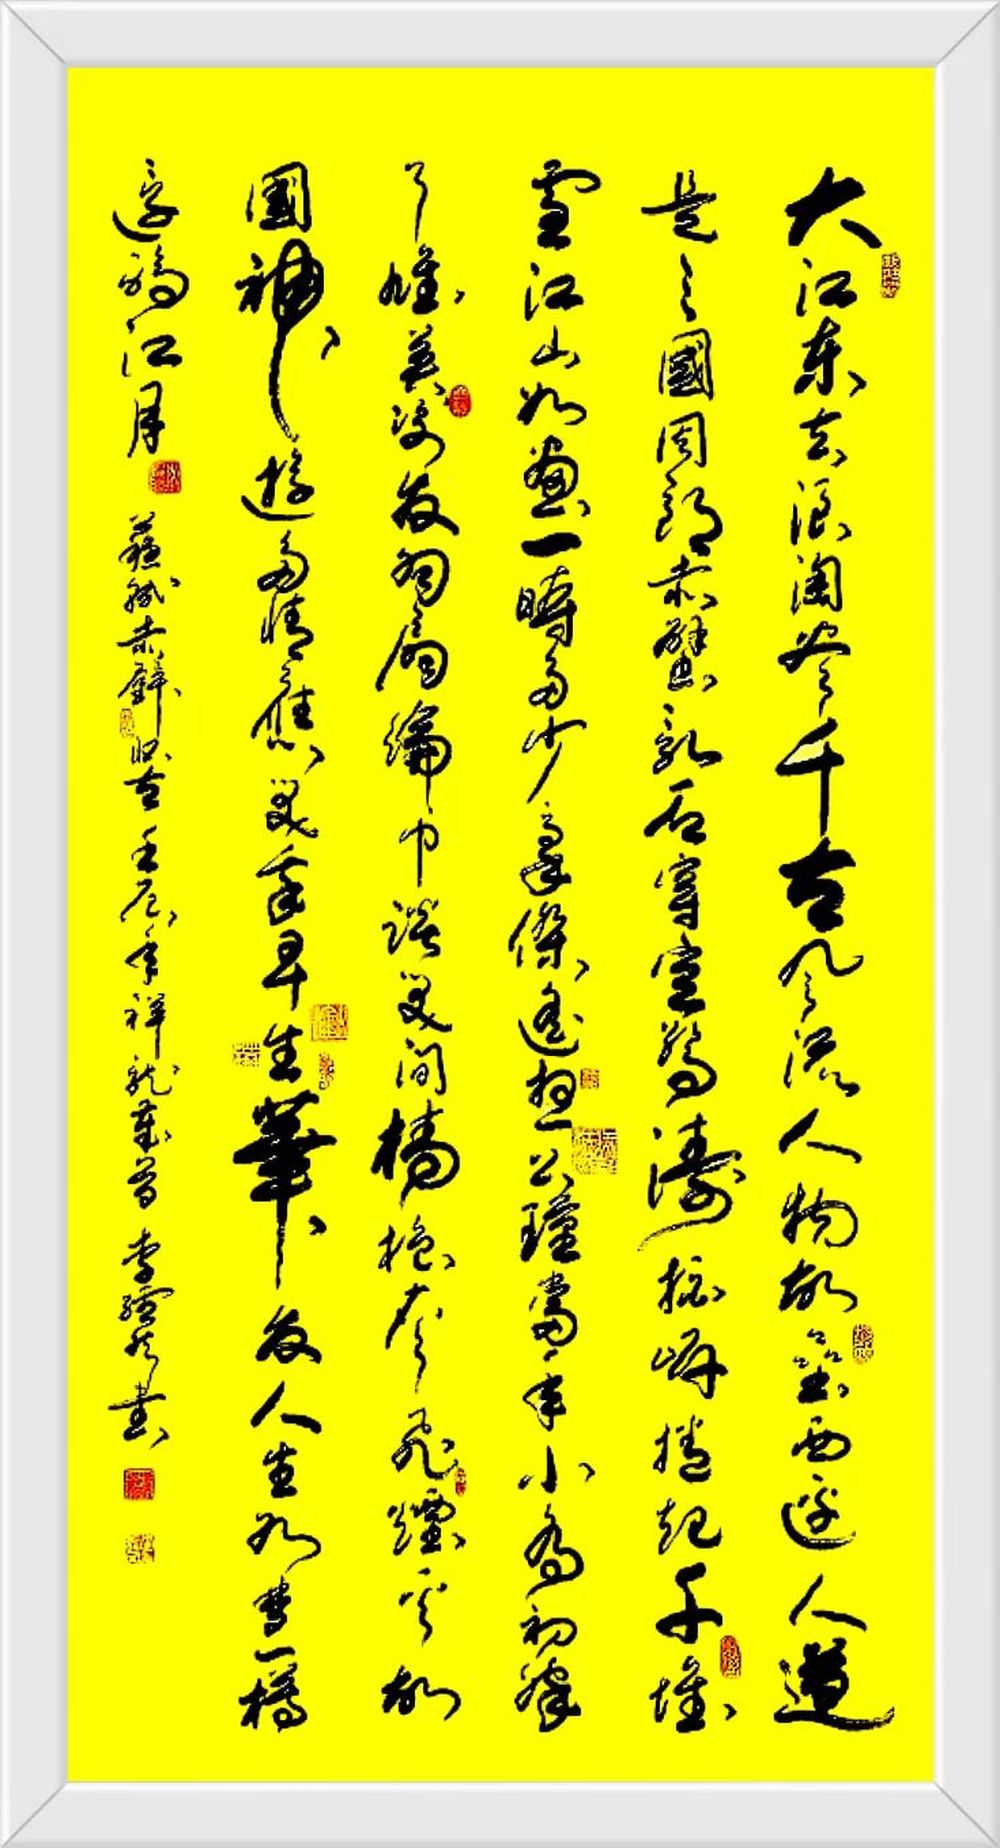 大江東去浪淘盡千古風流人物故壘西邊人道
是三國周郎赤壁亂石穿空驚濤拍岸捲起千堆
雪江山如畫一時多少豪傑遙想公瑾當年小喬初嫁
了雄英姿發羽扇綸巾談笑間檣櫓灰飛煙滅故
國神遊多情應笑我早生華發人生如夢一樽
還酹江月 蘇軾赤壁懷古壬辰年祥龍歲首李書